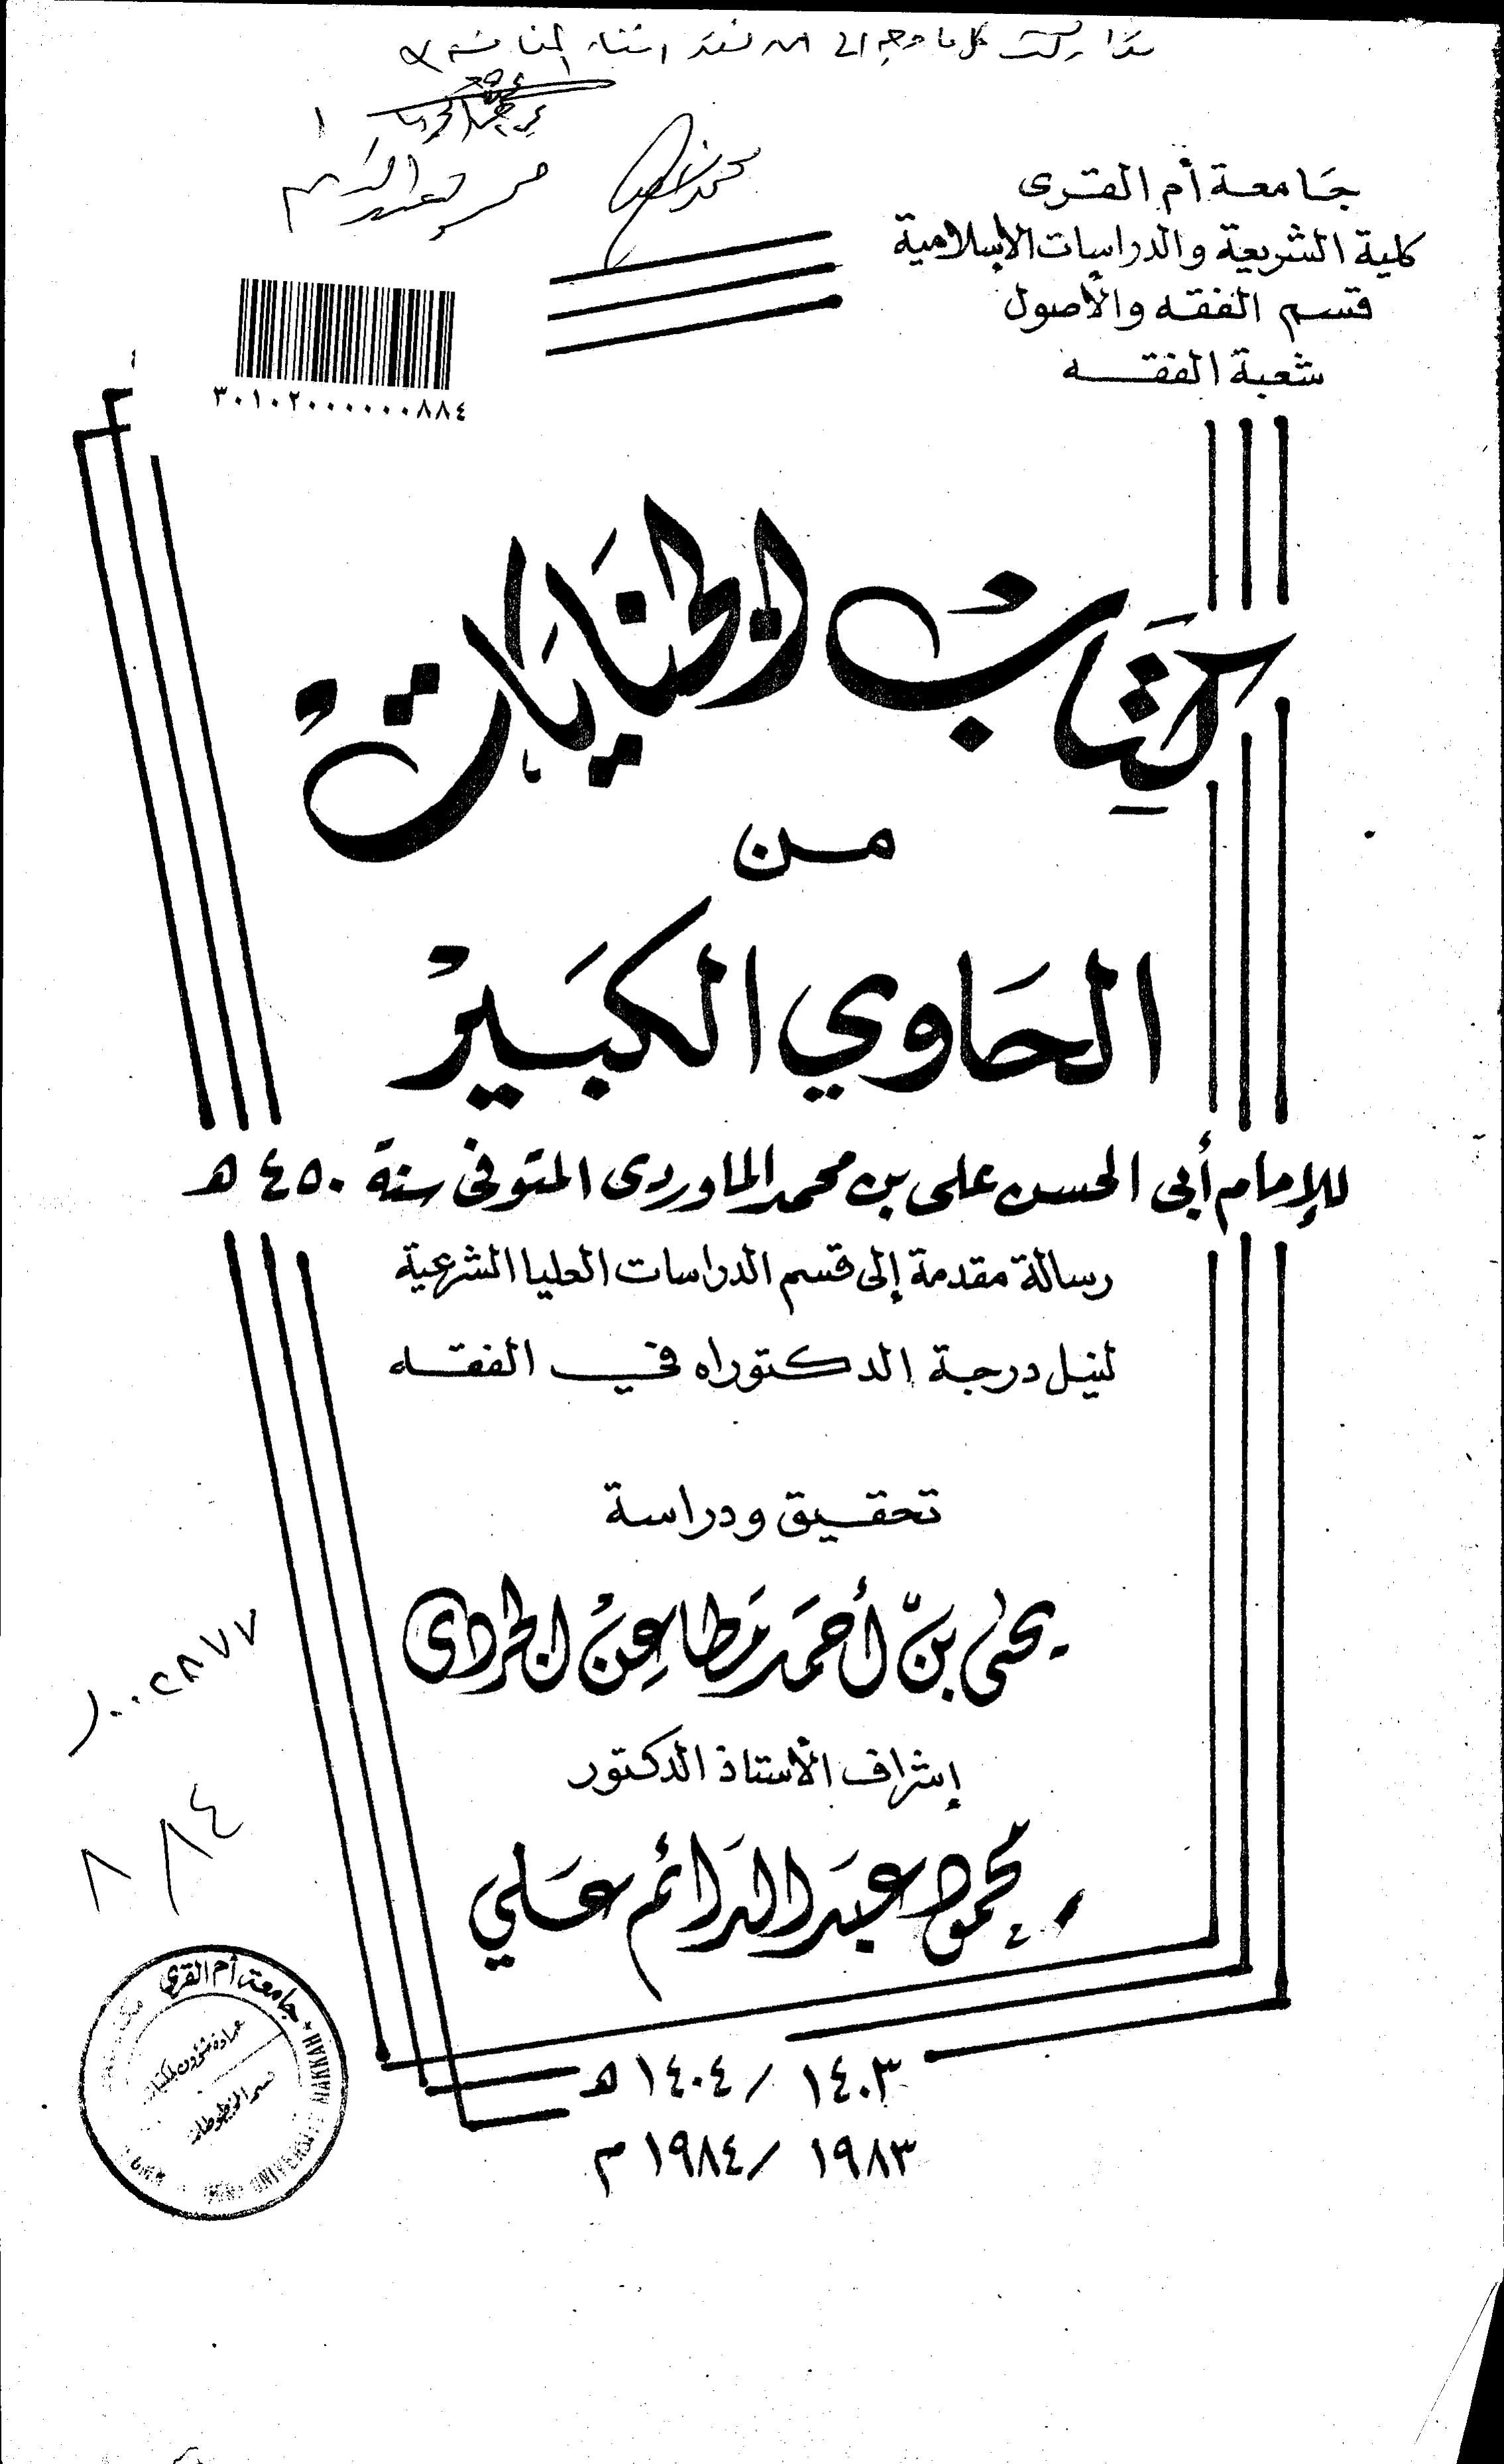 جامعة أم القرى
كلية الشريعة والدراسات الإسلامية
قسم الفقه والأصول
شعبة الفقه
٣٠١٠٢٠٠٠٠٠٠٨٨٤
كتاب الجنايات
من
الحاوي الكبير
للإمام أبى الحسن على بن محمد الماوردى المتوفى سنة ٤٥٠ هـ
رسالة مقدمة إلى قسم الدراسات العليا الشرعية
لنيل درجة الدكتوراه في الفقه
تحقيق ودراسة
يحيى بن أحمد مطاعن الجردى
إشراف الأستاذ الدكتور
محمود عبد الدائم علي
١٤٠٣ / ١٤٠٤ هـ
١٩٨٣ / ١٩٨٤ م
١٠٠٢٨٧٧
٨٨٤
جامعة أم القرى
عمادة شؤون المكتبات
قسم المخطوطات